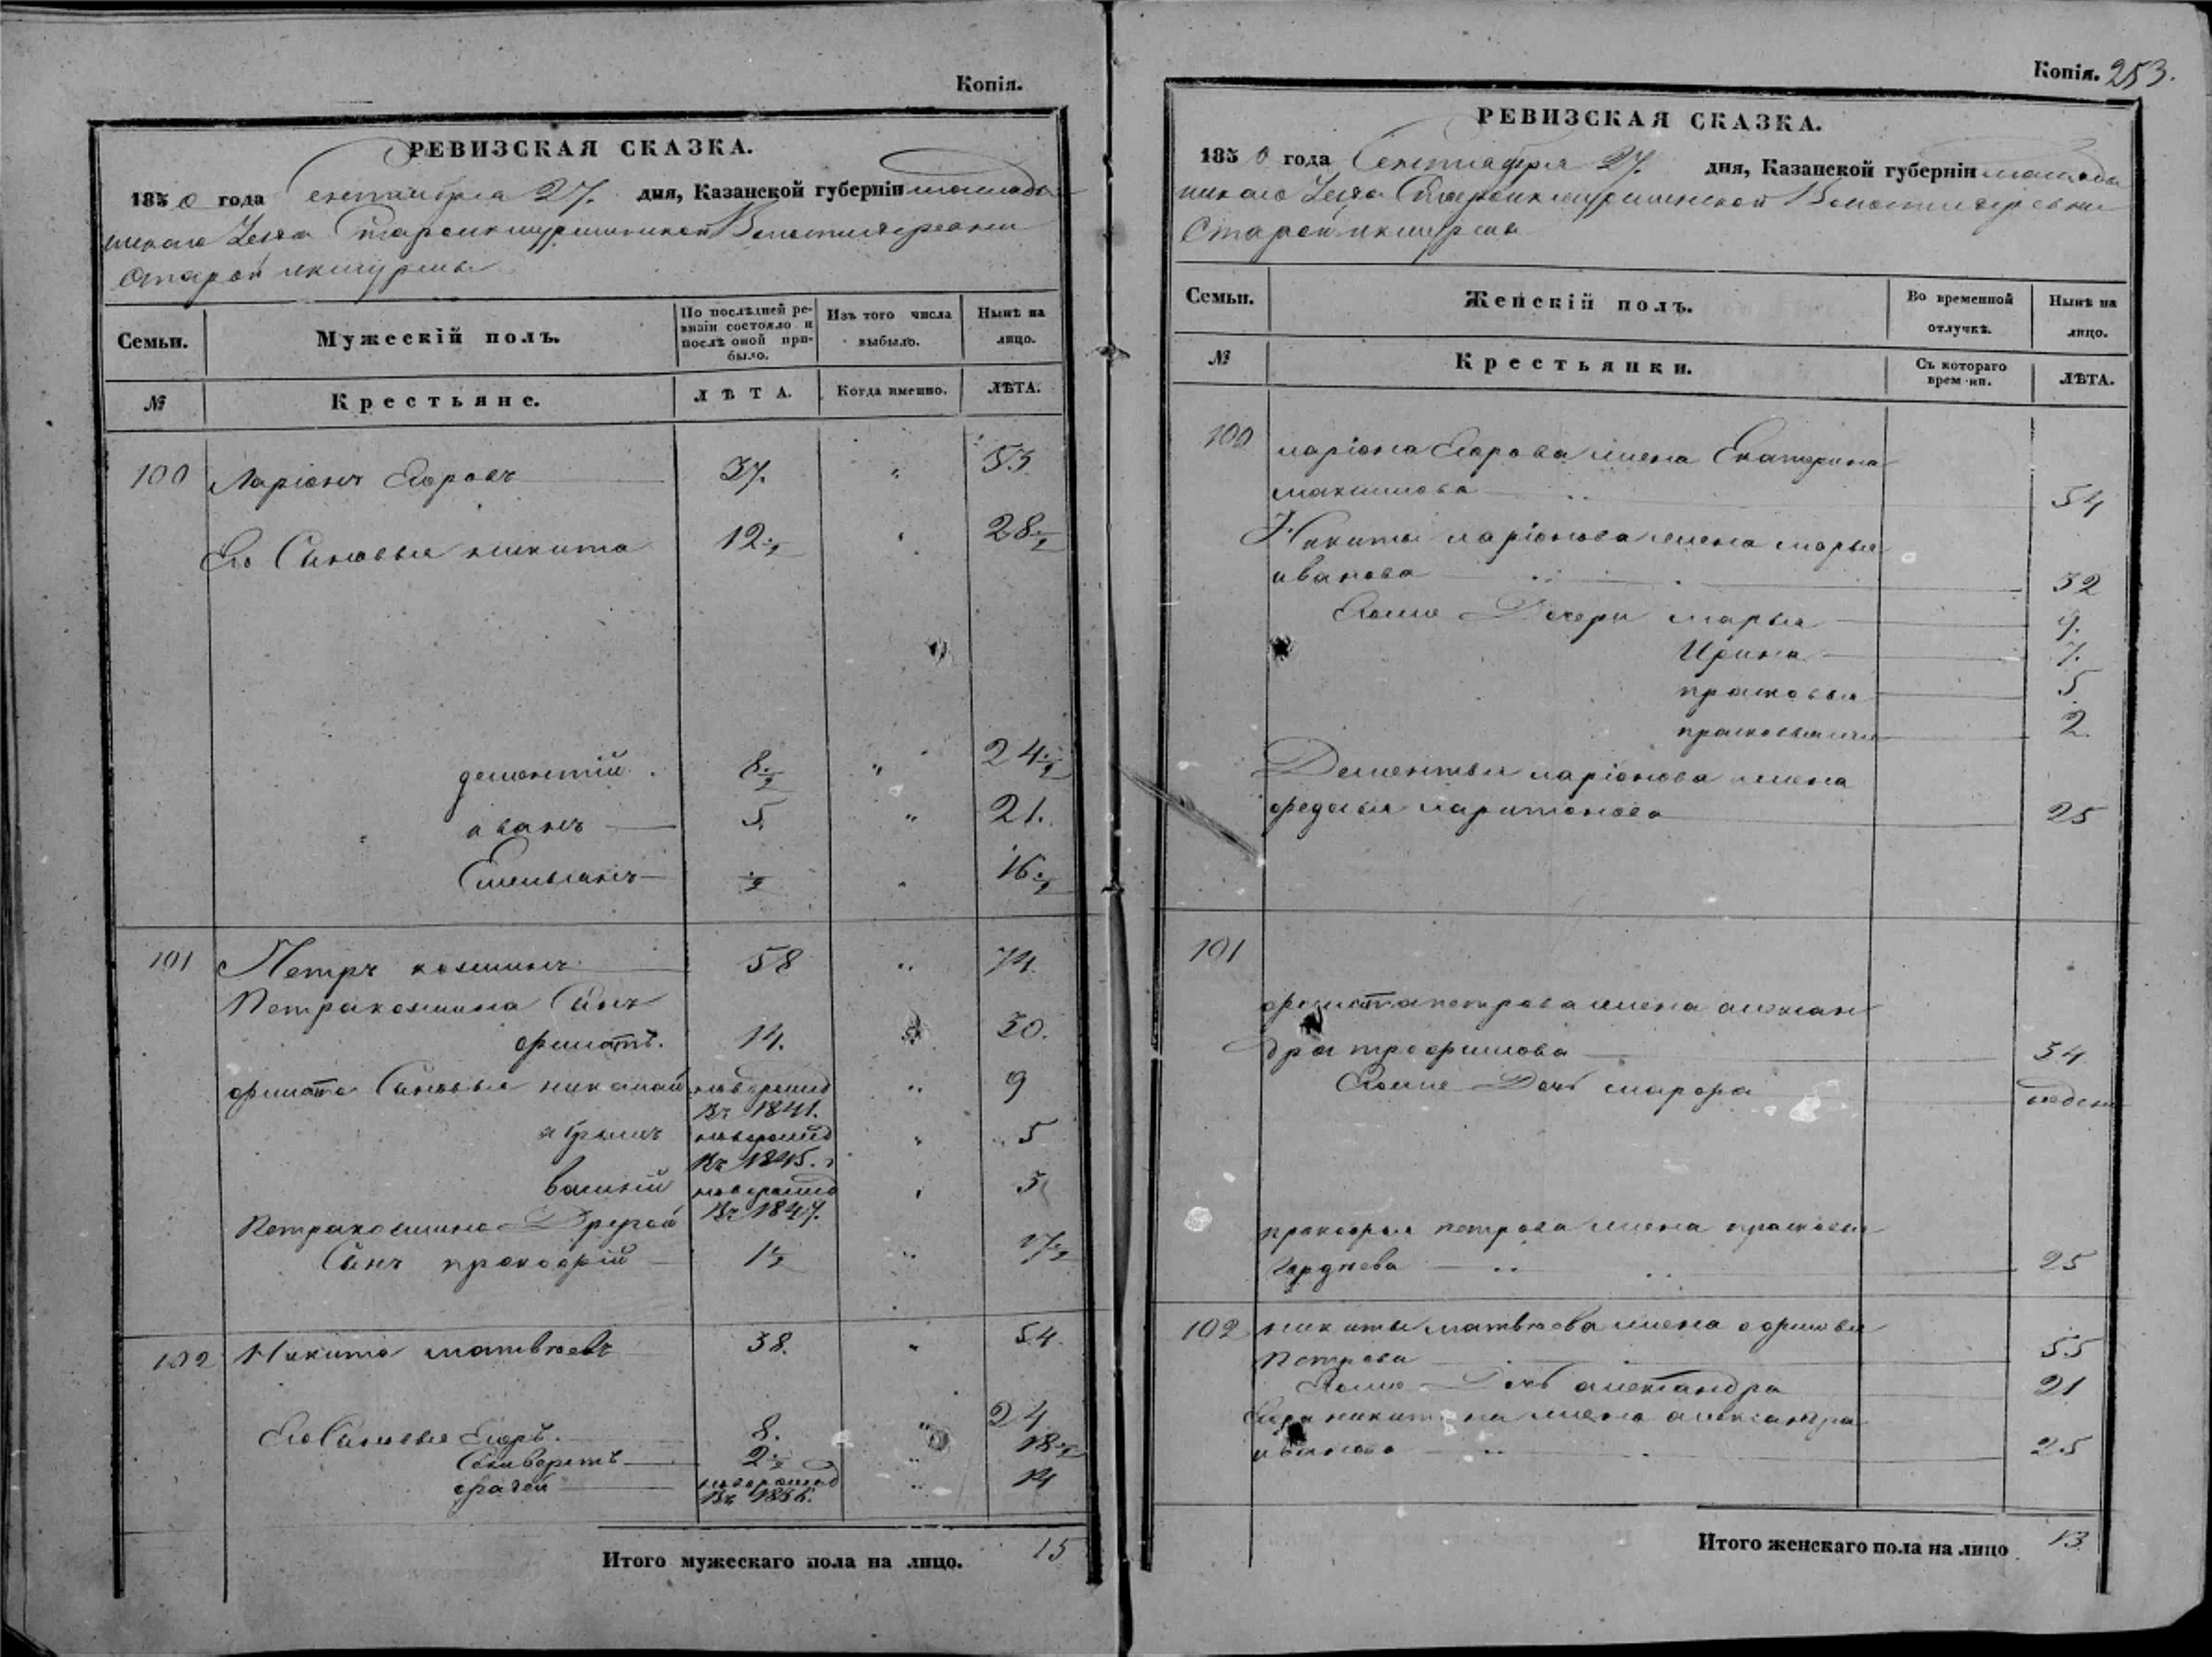 Копія.
РЕВИЗСКАЯ СКАЗКА.
1850 года Сентября 27. дня, Казанской губерніи мамады
шскаго Уезда Староикшурминской Волости деревни
Старой икшурмы
Семьи.
Мужескій полъ.
По послѣдней ре-
визіи состояло и
послѣ оной при-
было.
Изъ того числа
выбыло.
Нынѣ на
лицо.
№
Крестьяне.
ЛѢТА.
Когда именно.
ЛѢТА.
100 Ларіонъ Егоровъ 37. " 53
Его Сыновья никита 12 ½ " 28 ½
дементій 8 ½ " 24 ½
иванъ 5. " 21.
Емельянъ ½ " 16 ½
101 Петръ козминъ 58 " 74
Петра козмина Сынъ
филатъ. 14. " 30.
филата Сыновья николай новорожд " 9
въ 1841.
абрамъ новорожд " 5
въ 1845.
василій новорожд " 3
въ 1847.
Петра козмина Другой
Сынъ прокофій 1 ½ " 17 ½
102 Никита матвѣевъ 38. " 54.
Его Сыновья Егоръ. 8. " 24
Селиверстъ 2 ½ " 18 ½
фадей новорожд " 14
въ 1836.
Итого мужескаго пола на лицо. 15
Копія. 253.
РЕВИЗСКАЯ СКАЗКА.
1850 года Сентября 27. дня, Казанской губерніи мамады
шскаго Уезда Староикшурминской Волости деревни
Старой икшурмы
Семьи.
Женскій полъ.
Во временной
отлучкѣ.
Нынѣ на
лицо.
№
Крестьянки.
Съ котораго
времени.
ЛѢТА.
100 ларіона Егорова жена Екатерина
максимова 54
Никиты ларіонова жена марья
иванова 32
Егоже Дочери марья 9.
Ирина 7.
прасковья 5
прасковья же 2
Дементья ларіонова жена
федосья харитонова 25
101
филата петрова жена алексан
дра трофимова 34
Егоже Дочь марфа недели
прокофья петрова жена прасковья
25
102 никиты матвѣева жена офимья
Петрова 55
Егоже Дочь александра 21
Егора никитина жена александра
иванова 25
Итого женскаго пола на лицо 13